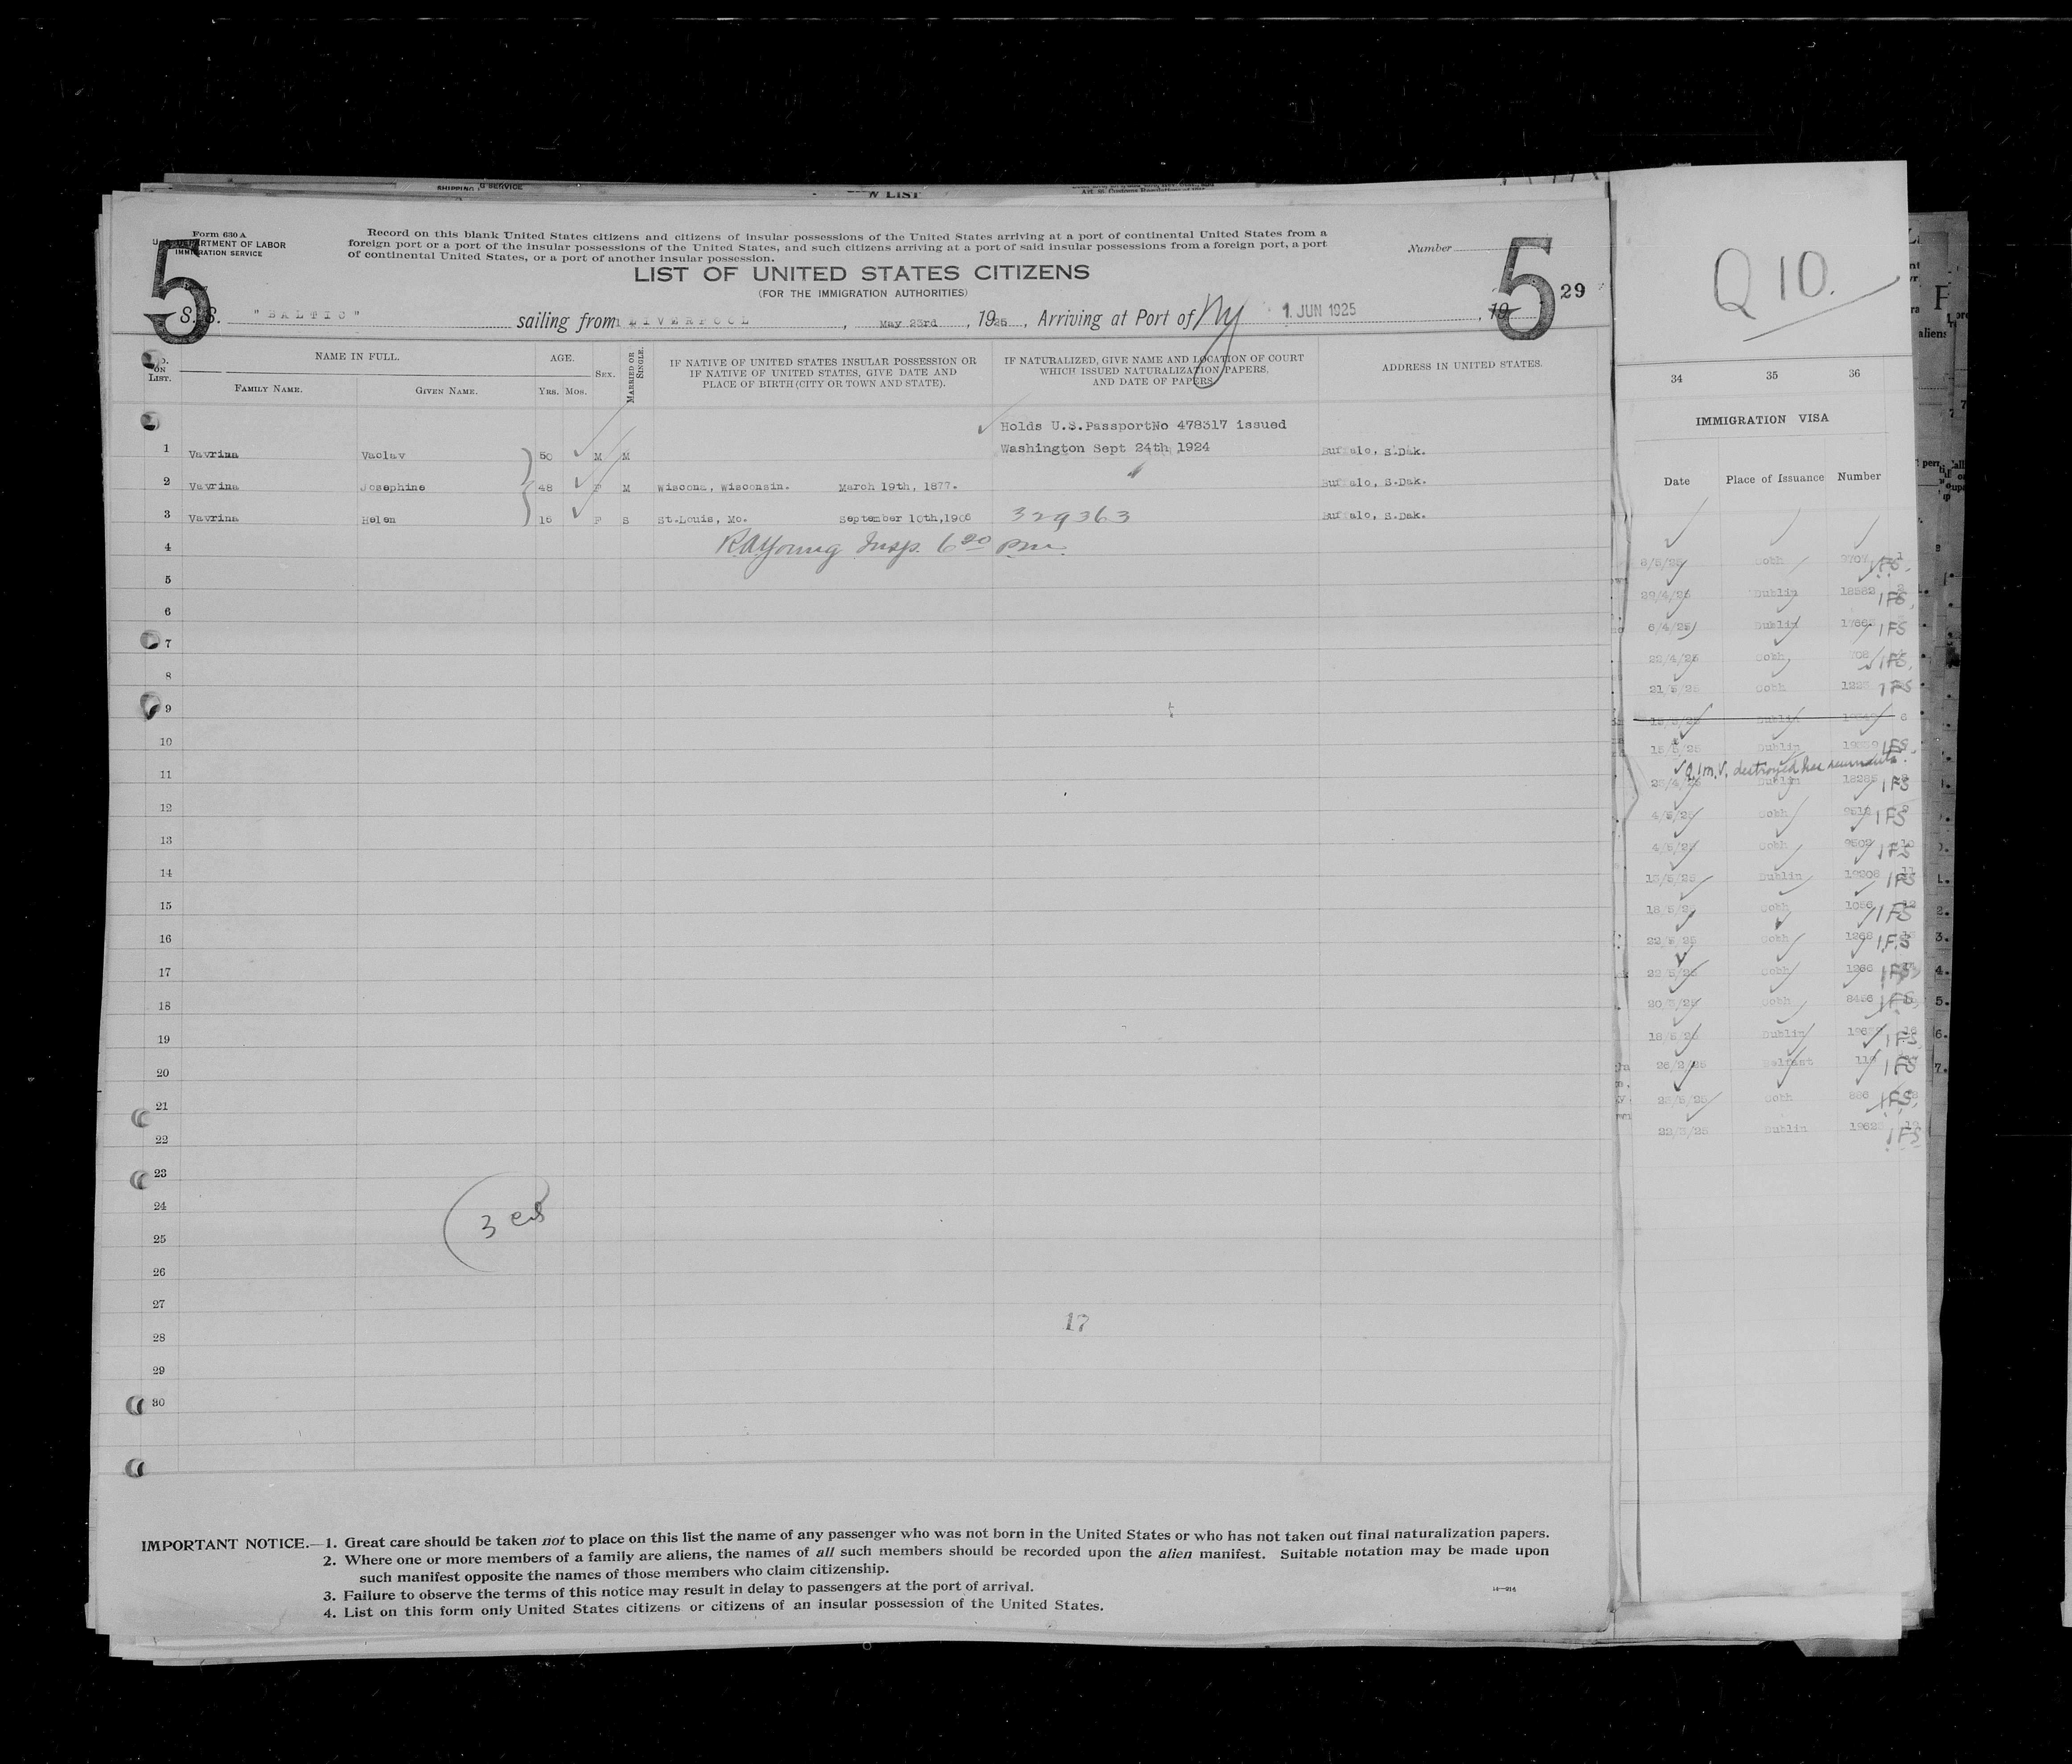 SHIPPING G SERVICE
W LIST
Form 630 A
U. S. DEPARTMENT OF LABOR
IMMIGRATION SERVICE
Record on this blank United States citizens and citizens of insular possessions of the United States arriving at a port of continental United States from a
foreign port or a port of the insular possessions of the United States, and such citizens arriving at a port of said insular possessions from a foreign port, a port
of continental United States, or a port of another insular possession.
Number
5
5
29
LIST OF UNITED STATES CITIZENS
(FOR THE IMMIGRATION AUTHORITIES)
S. S. "BALTIC" sailing from LIVERPOOL, May 23rd, 1925, Arriving at Port of Ny 1 JUN 1925, 19
No. ON LIST.
NAME IN FULL.
FAMILY NAME.
GIVEN NAME.
AGE.
YRS. MOS.
SEX.
MARRIED OR SINGLE.
IF NATIVE OF UNITED STATES INSULAR POSSESSION OR
IF NATIVE OF UNITED STATES, GIVE DATE AND
PLACE OF BIRTH (CITY OR TOWN AND STATE).
IF NATURALIZED, GIVE NAME AND LOCATION OF COURT
WHICH ISSUED NATURALIZATION PAPERS,
AND DATE OF PAPERS
ADDRESS IN UNITED STATES.
Holds U.S.PassportNo 478317 issued
Washington Sept 24th 1924
1 Vavrina Vaclav 50 M M Buffalo, S.Dak.
2 Vavrina Josephine 48 F M Wiscona, Wisconsin. March 19th, 1877. Buffalo, S.Dak.
3 Vavrina Helen 16 F S St.Louis, Mo. September 10th,1908 329363 Buffalo, S.Dak.
4 RAYoung Insp. 6 20 pm.
5
6
7
8
9
10
11
12
13
14
15
16
17
18
19
20
21
22
23
24
3
25
26
27
28
17
29
30
IMPORTANT NOTICE.—1. Great care should be taken not to place on this list the name of any passenger who was not born in the United States or who has not taken out final naturalization papers.
2. Where one or more members of a family are aliens, the names of all such members should be recorded upon the alien manifest. Suitable notation may be made upon
such manifest opposite the names of those members who claim citizenship.
3. Failure to observe the terms of this notice may result in delay to passengers at the port of arrival.
4. List on this form only United States citizens or citizens of an insular possession of the United States.
14—214
Q 10.
34 35 36
IMMIGRATION VISA
Date Place of Issuance Number
8/5/25 Cobh 1FS
29/4/25 Dublin 18582 1FS
6/4/25 Dublin 1FS
22/4/25 Cobh 708 1FS
21/5/25 Cobh 1FS
Dublin 6
15/5/25 Dublin 1FS
Q.Im.V. destroyed has
Dublin 18285 1FS
4/5/25 Cobh 1FS
4/5/25 Cobh 9502 1FS
13/5/25 Dublin 1FS
18/5/25 Cobh 1056 1FS
22/5/25 Cobh 1268 1FS
22/5/25 Cobh 1266 1FS
20/5/25 Cobh 8456 1FS
18/5/25 Dublin 1FS
26/2/25 Belfast 1FS
Cobh 886 1FS
22/5/25 Dublin 1FS